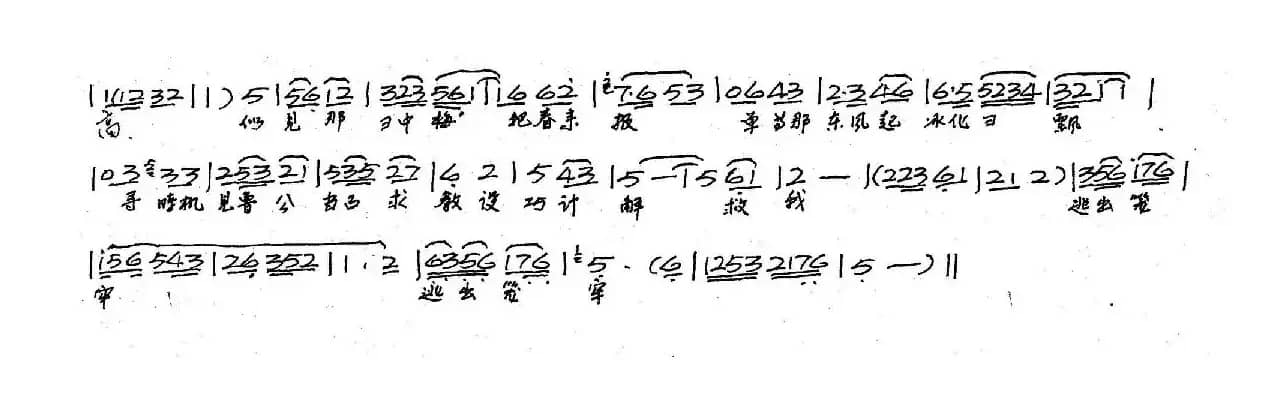 |1(12 32 | 1 ) 5 | 56 12 | 323 561 1 | 6 62 | 7·6 53 | 0643 | 2·3 46 | 6·5 5234 | 32 1 1 |
高 似 见 那 ヨ中 梅 把春来 报 单等那 东风起 冰化ヨ 飘
|03 33 | 253 21 | 535 27 | 6 2 | 5 43 | 5 — | 5 61 | 2 — | (223 61 | 21 2) | 356 176 |
寻 时机 见鲁 公 求 教 设 巧 计 解 救 我 逃出 笼
|156 543 | 26 352 | 1 · 2 | 6356 176 | 5 · (6 | 1253 2176 | 5 —) ||
牢 逃 出 笼 牢